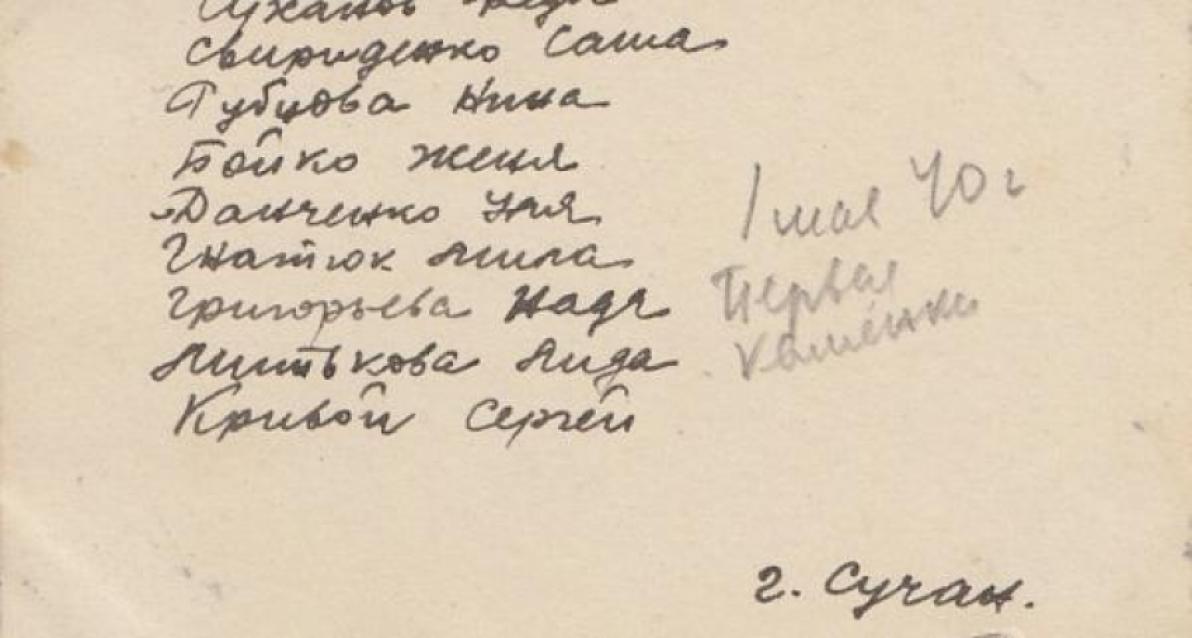 Суханов
Свириденко Саша
Губцова Нина
Бойко Женя
Данченко Уля
Гнатюк Мила
Григорьева Надя
Митькова Лида
Кривой Сергей
1 мая 40 г
Первая
г. Сучан.